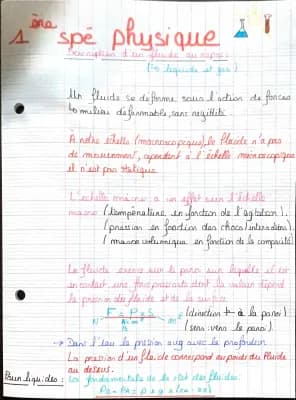 1ère spé physique
Description d'un fluide au repos :
(↳ liquide et gaz)
Un fluide se déforme sous l'action de forces
↳ milieu déformable, sans rigidité.
À notre échelle (macroscopique), le fluide n'a pas
de mouvement, cependant à l'échelle microscopique
il n'est pas statique.
L'échelle micro a un effet sur l'échelle
macro (température en fonction de l'agitation).
(pression en fonction des chocs/interactions)
(masse volumique en fonction de la compacité)
Le fluide exerce sur la paroi sur laquelle il est
en contact une force pressante dont la valeur dépend
la pression du fluide et de la surface
F = P × S (direction ⊥ à la paroi)
N Pa m² (sens : vers la paroi)
→ Dans l'eau la pression aug avec la profondeur.
La pression d'un fluide correspond au poids du fluide
au dessus.
Pour liquides : Loi fondamentale de la stat des fluides :